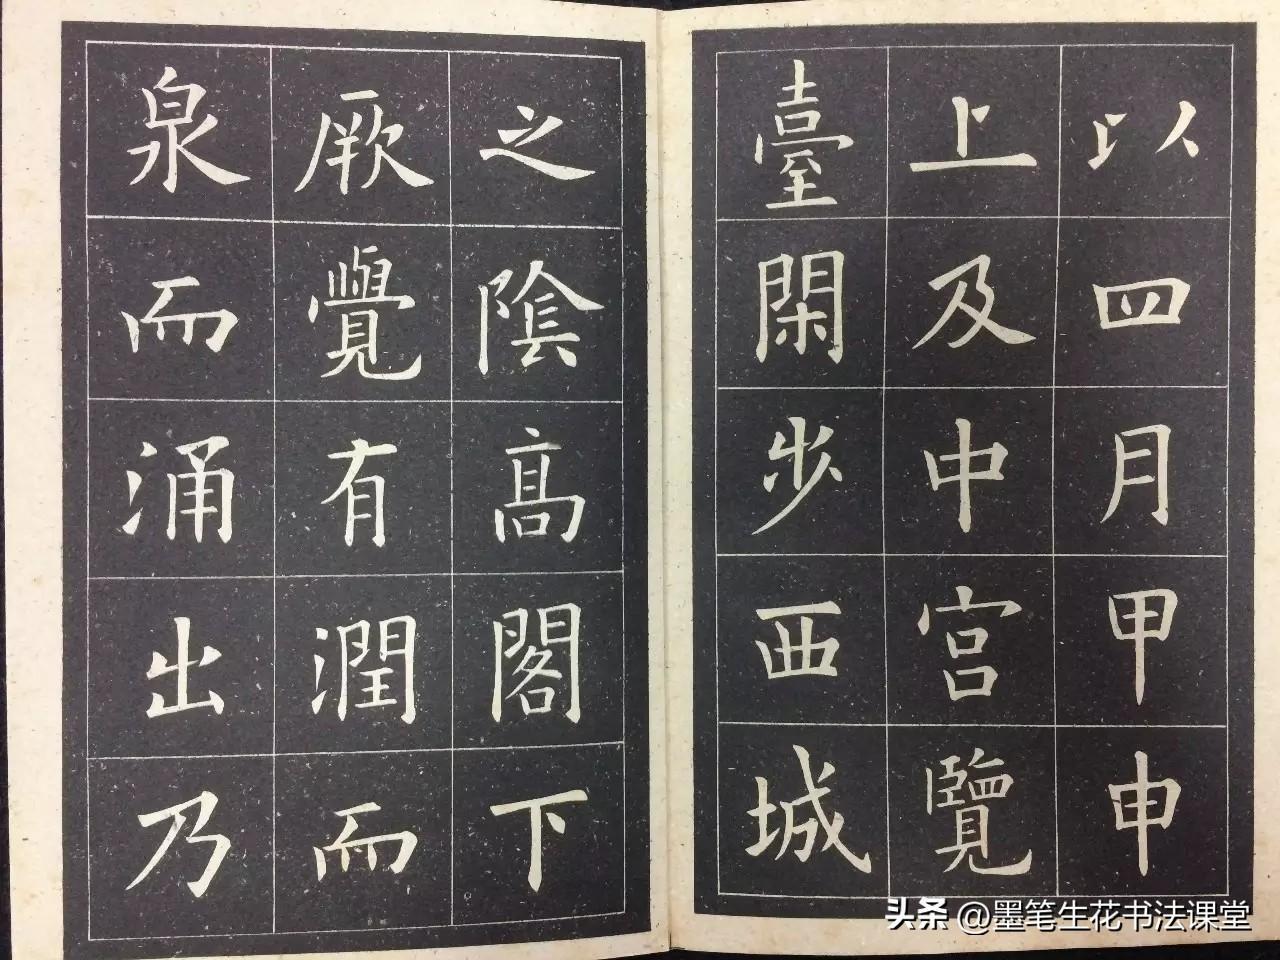 以四月甲申
上及中宮覽
臺閑步西城
之陰高閣下
厥覺有潤而
泉而涌出乃
头条 @墨笔生花书法课堂